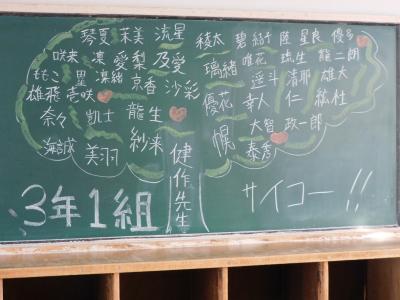 琴夏 茉美 流星
稜太 碧 結斗 陸 星良 優多
咲来 凜 愛梨 乃愛
璃緒 唯花 琉生 龍二朗
ももこ 里 凜緒 京香 沙彩
遥斗 清那 雄大
雄飛 壱咲
優花 幸人 仁
奈々 凱士 龍生
大智 政一郎
海誠 美羽 紗来
幌 泰秀
健作先生
3年1組
サイコー!!